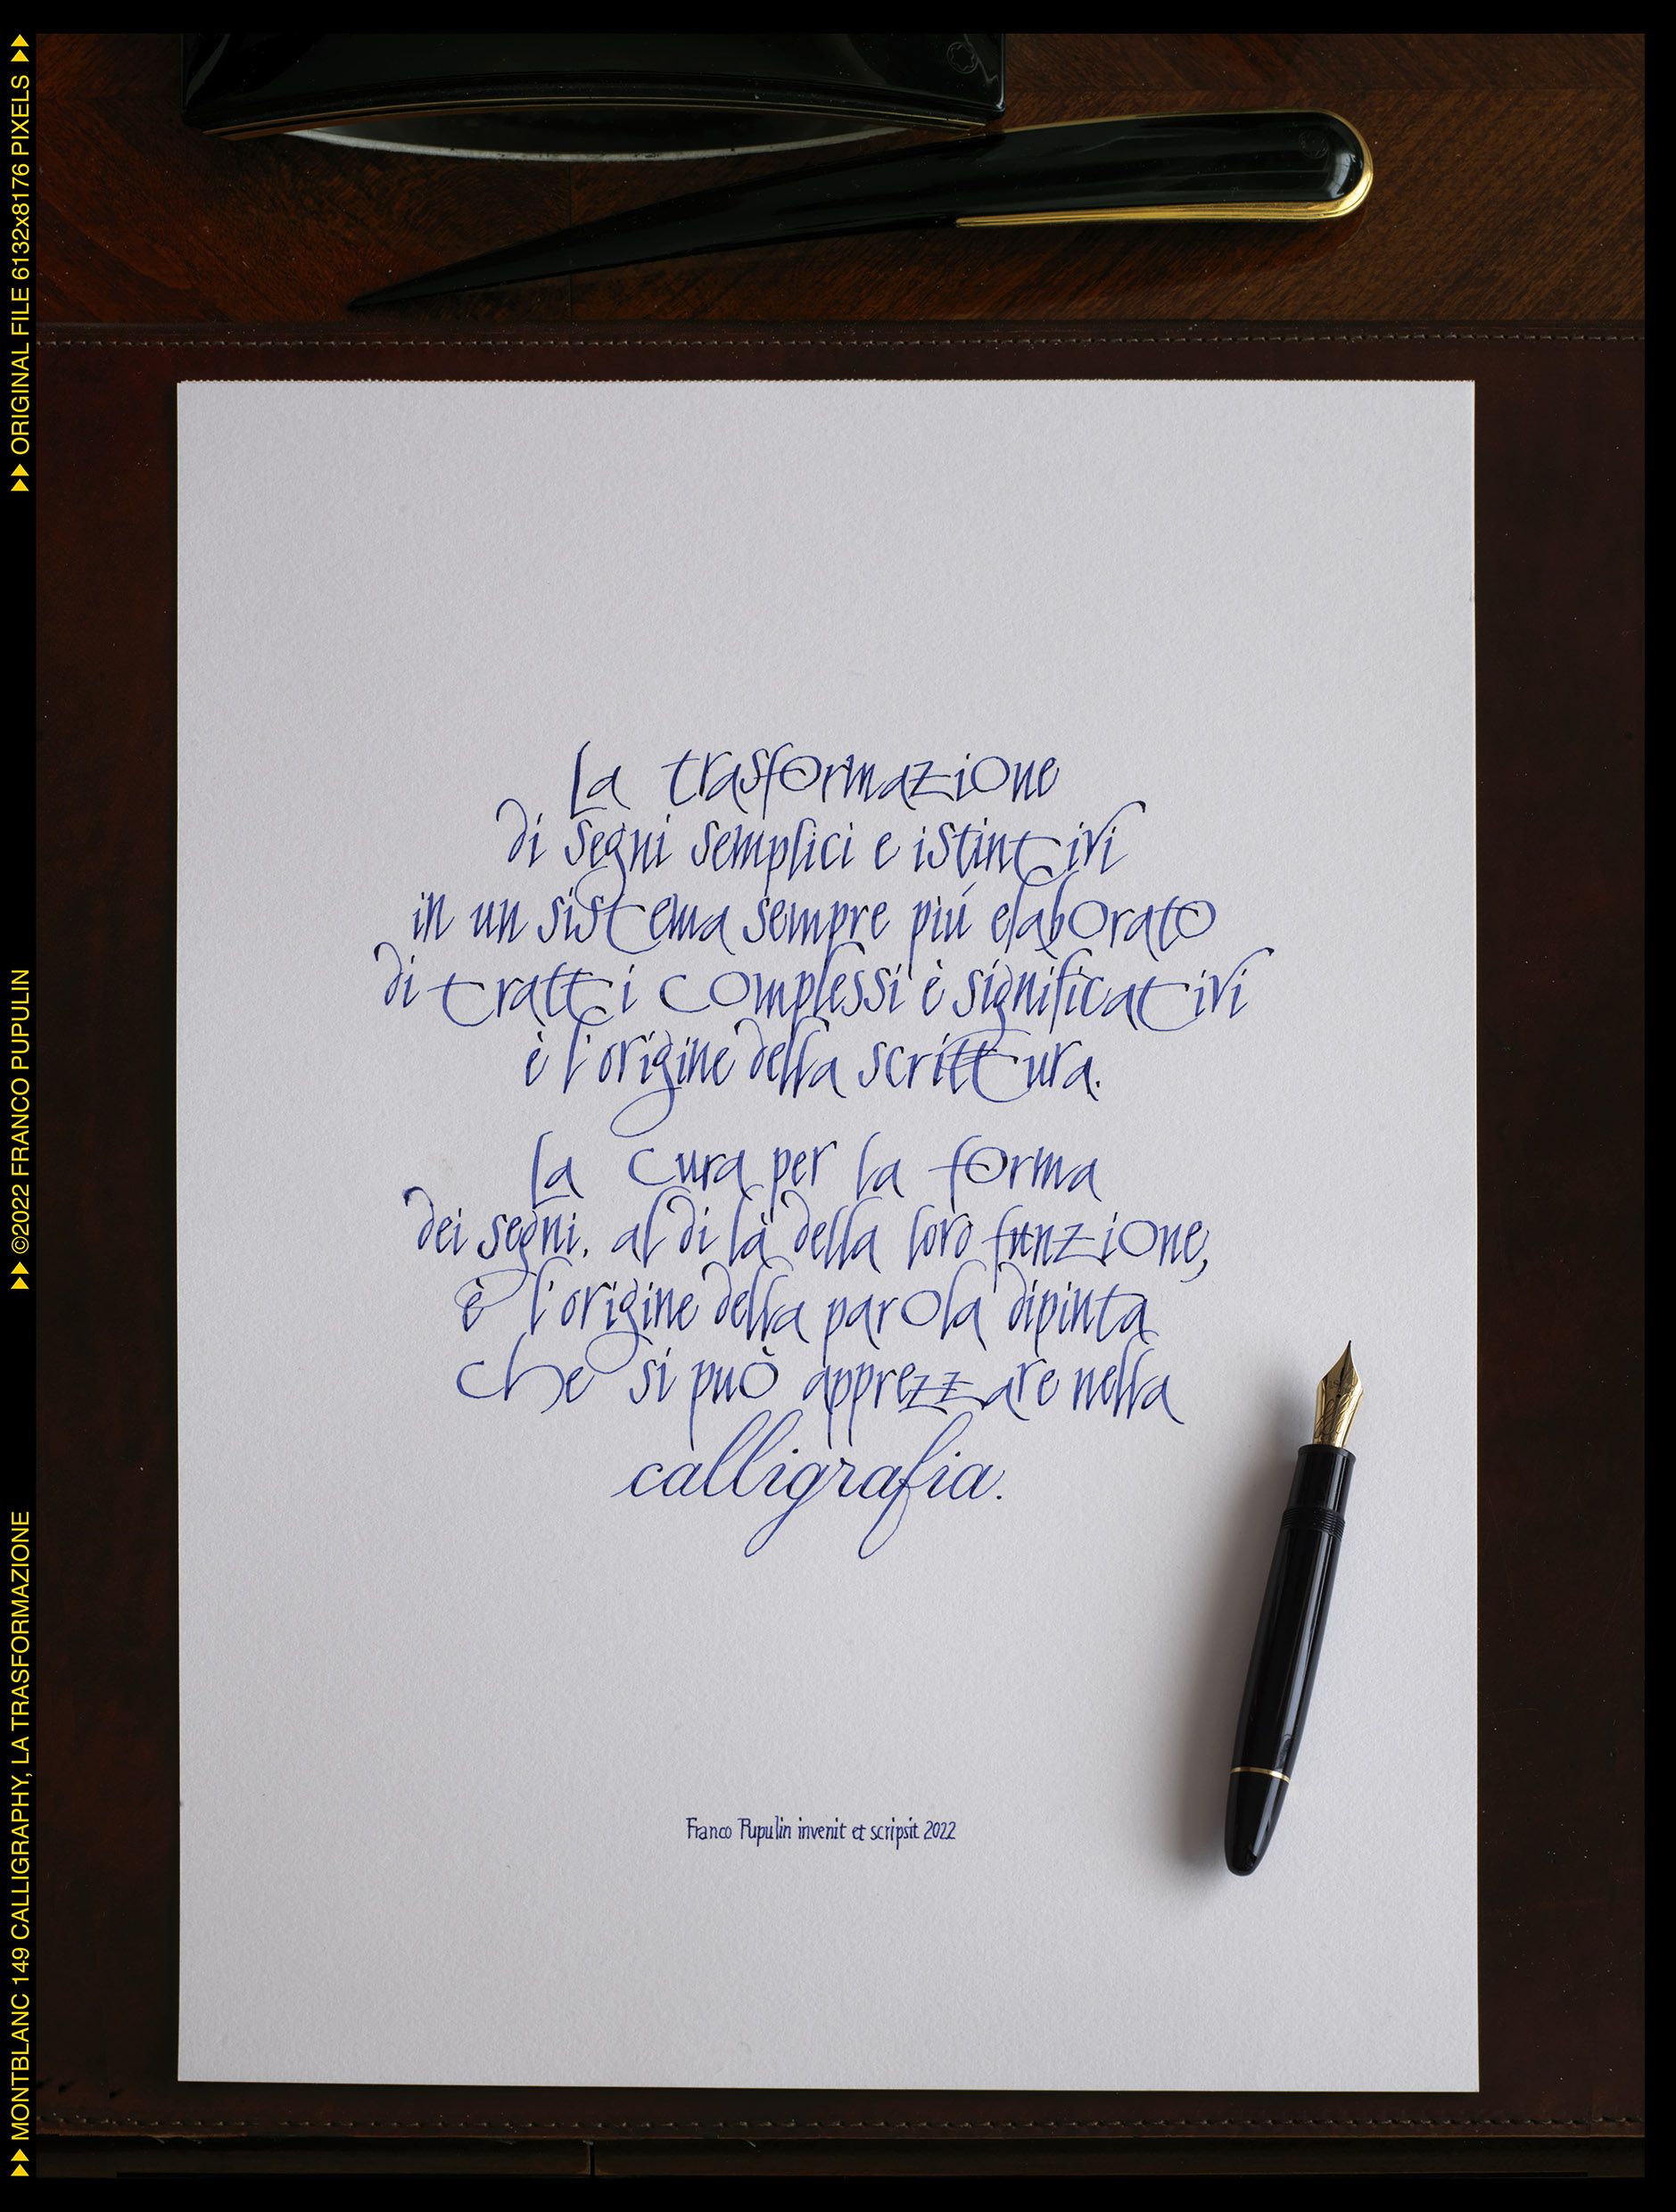 La trasformazione
di segni semplici e istintivi
in un sistema sempre piú elaborato
di tratti complessi è significativi
è l'origine della scrittura.
La cura per la forma
dei segni, al di là della loro funzione,
è l'origine della parola dipinta
che si può apprezzare nella
calligrafia.
Franco Pupulin invenit et scripsit 2022
MONTBLANC 149 CALLIGRAPHY, LA TRASFORMAZIONE
©2022 FRANCO PUPULIN
ORIGINAL FILE 6132x8176 PIXELS